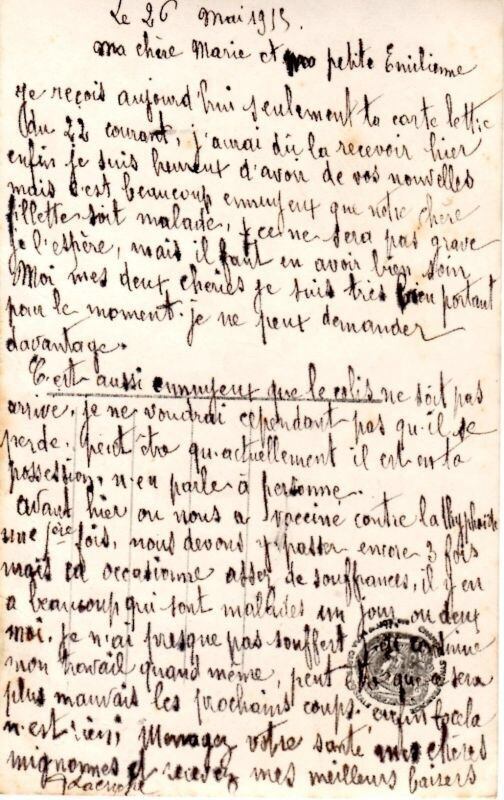 Le 26 mai 1915
Ma chère Marie et ma petite Emilienne
Je reçois aujourd'hui seulement ta carte lettre
du 22 courant, j'aurai dû la recevoir hier
enfin je suis heureux d'avoir de vos nouvelles
mais c'est beaucoup ennuyeux que notre chère
fillette soit malade, ce ne sera pas grave
je l'espère, mais il faut en avoir bien soin
Moi mes deux chéries je suis très bien portant
pour le moment je ne peux demander
davantage.
C'est aussi ennuyeux que le colis ne soit pas
arrivé, je ne voudrai cependant pas qu'il se
perde. peut être qu'actuellement il est en ta
possession, n'en parle à personne.
avant hier on nous a vacciné contre la thyphoïde
une 1ère fois, nous devons y passer encore 3 fois
mais ça occasionne assez de souffrances, il y en
a beaucoup qui sont malades un jour ou deux
moi, je n'ai presque pas souffert, continue
mon travail quand même, peut être que ça sera
plus mauvais les prochains coups, enfin cela
n'est rien, Menagez votre santé mes chères
mignonnes et recevez mes meilleurs baisers